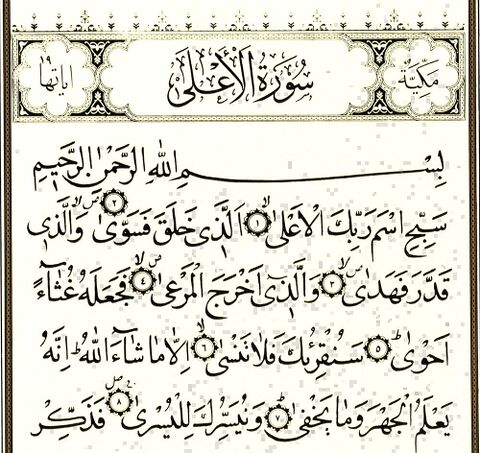 مكية سورة الأعلى اياتها ١٩
بِسْمِ اللهِ الرَّحْمٰنِ الرَّحِيمِ
سَبِّحِ اسْمَ رَبِّكَ الْاَعْلٰى ۙ ﴿١﴾ اَلَّذِى خَلَقَ فَسَوّٰى ۙ ﴿٢﴾ وَالَّذِى
قَدَّرَ فَهَدٰى ۙ ﴿٣﴾ وَالَّذِىٓ اَخْرَجَ الْمَرْعٰى ۙ ﴿٤﴾ فَجَعَلَهُ غُثَآءً
اَحْوٰى ۜ ﴿٥﴾ سَنُقْرِئُكَ فَلَا تَنْسٰى ۙ ﴿٦﴾ اِلَّا مَا شَآءَ اللهُ ۜ اِنَّهُ
يَعْلَمُ الْجَهْرَ وَمَا يَخْفٰى ۜ ﴿٧﴾ وَنُيَسِّرُكَ لِلْيُسْرٰى ۚ ﴿٨﴾ فَذَكِّرْ